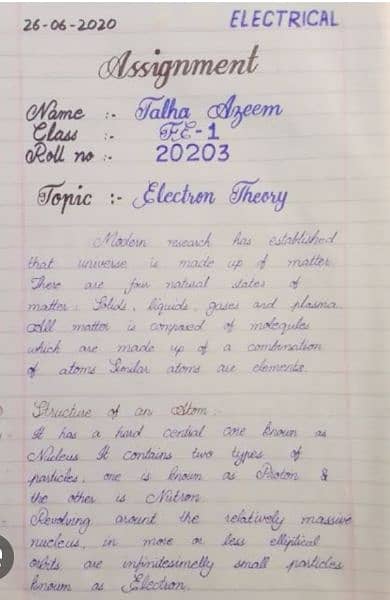 26-06-2020 ELECTRICAL
Assignment
Name :- Talha Azeem
Class :- FE-1
Roll no :- 20203
Topic :- Electron Theory
Modern research has established
that universe is made up of matter.
There are four natural states of
matter: Solids, liquids, gases and plasma.
All matter is compased of molequles
which are made up of a combination
of atoms Similar atoms are elements.
Structure of an Atom :-
It has a hard central core known as
Nucleus It contains two types of
particles, one is known as Proton &
the other is Nutron.
Revolving arount the relatively massive
nucleus, in more or less elliptical
orbits are infinitesimelly small particles
known as Electron.